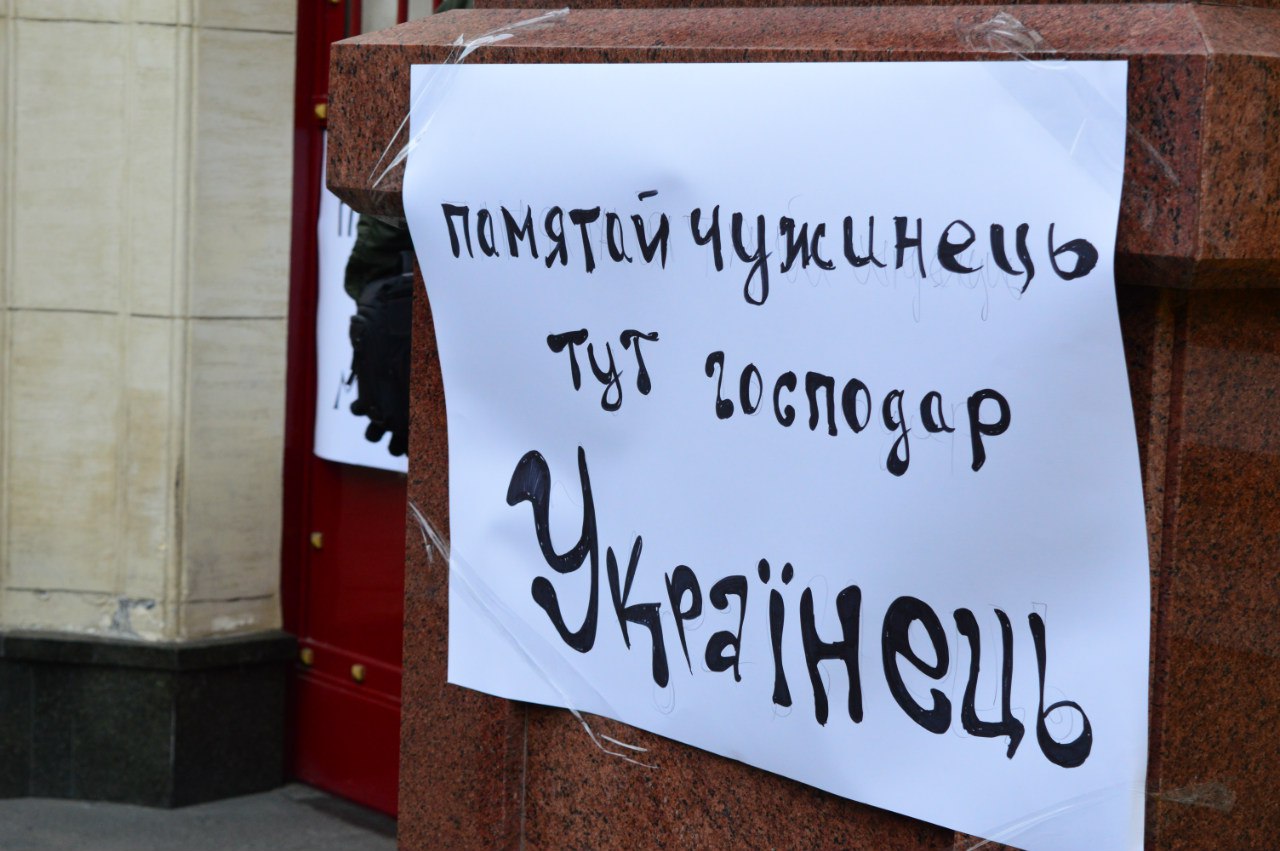 памятай чужинець
тут господар
Українець